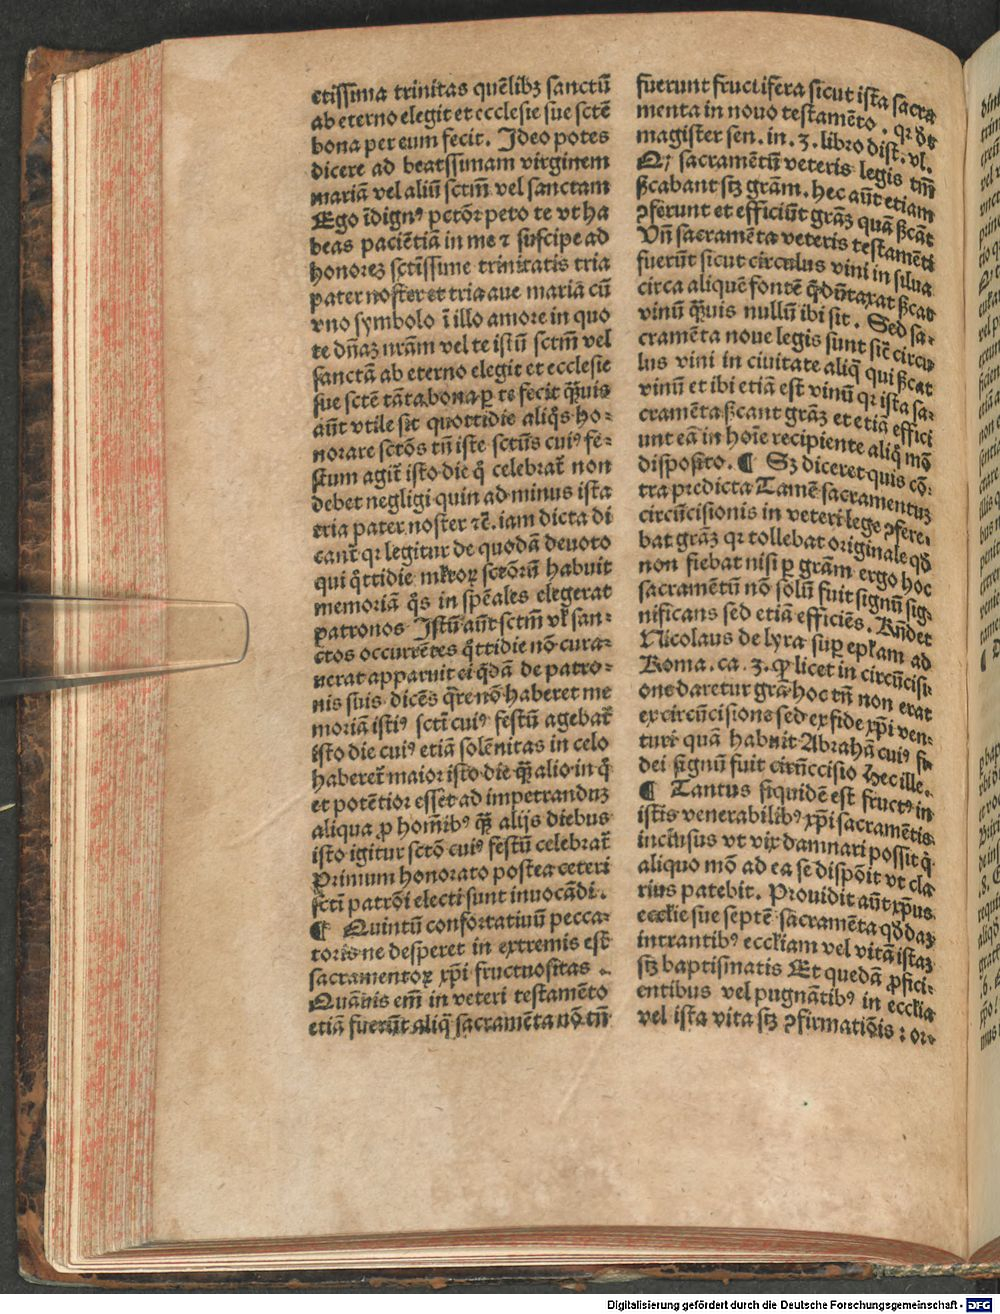 ctissima trinitas quēlibꝫ sanctū
ab eterno elegit et ecclesie sue sctē
bona per eum fecit. Ideo potes
dicere ad beatssimam virginem
mariā vel aliū sctm̄ vel sanctam
Ego īdignꝰ pctōꝛ peto te vt ha
beas paciētiā in me ⁊ suscipe ad
honoreꝫ sctīssime trinitatis tria
pater noster et tria aue mariā cū
vno symbolo ī illo amore in quo
te dn̄aꝫ nr̄am vel te istū sctm̄ vel
sanctā ab eterno elegit et ecclesie
sue sctē tāta bona ꝑ te fecit qͣꝫuis
aūt vtile sit quottidie aliqͦs ho-
norare sctōs tn̄ iste sctūs cuiꝰ fe-
stum agit̄ isto die qͦ celebrat̄ non
debet negligi quin ad minus ista
tria pater noster ⁊c̄. iam dicta di
cant̄ qꝛ legitur de quodā deuoto
qui qͦttidie mr̄oꝝ sctōrū habuit
memoriā qͦs in spēales elegerat
patronos Istū aūt sctm̄ vl̄ san-
ctos occurrētes qͦttidie nō cura-
uerat apparuit ei qͥdā de patro-
nis suis dicēs qͣre nō haberet me
moriā istiꝰ sctī cuiꝰ festū agebat̄
isto die cuiꝰ etiā solēnitas in celo
haberet̄ maior isto die qͣꝫ alio in qͦ
et potētior esset ad impetranduꝫ
aliqua ꝓ homībꝰ qͣꝫ alijs diebus
isto igitur sctō cuiꝰ festū celebrat̄
Primum honorato postea ceteri
sctī patrōi electi sunt inuocādi.
¶ Quintū confortatiuū pecca-
toris ne desperet in extremis est
sacramentoꝝ xp̄i fructuositas.
Quāuis em̄ in veteri testamēto
etiā fuerūt aliqͣ sacramēta nō tn̄
fuerunt fructifera sicut ista sacra
menta in nouo testamēto. qꝛ dt̄
magister sen. in. 3. libro dist. vl.
Qꝫ sacramētū veteris legis tm̄
ſꝫcabant sꝫ grām. hec aūt etiam
ꝯferunt et efficiūt grāꝫ quā ſꝫcāt
Vn̄ sacramēta veteris testamēti
fuerūt sicut circulus vini in silua
circa aliquē fontē qͥ dūtaxat ſꝫcat
vinū qͣꝫuis nullū ibi sit. Sed sa-
cramēta noue legis sunt sic̄ circu
lus vini in ciuitate aliqͣ qui ſꝫcat
vinū et ibi etiā est vinū qꝛ ista sa-
cramēta ſꝫcant grāꝫ et etiā effici
unt eā in hoīe recipiente aliqͦ mō
disposito. ¶ Sꝫ diceret quis cō-
tra predicta Tamē sacramentuꝫ
circūcisionis in veteri lege ꝯfere-
bat grāꝫ qꝛ tollebat originale qd̄
non fiebat nisi ꝑ grām ergo hoc
sacramētū nō solū fuit signū sig-
nificans sed etiā efficiēs. Rn̄det
Nicolaus de lyra suꝑ epl̄am ad
Roma. ca. 3. ꝙ licet in circūcisi-
one daretur grā hoc tn̄ non erat
ex circūcisione sed ex fide xp̄i ven-
turi quā habuit Abrahā cuiꝰ fi-
dei signū fuit cirūccisio Hec ille.
¶ Tantus siquidē est fructꝰ in
istis venerabilibꝰ xp̄i sacramētis
inclusus vt vix damnari possit qͥ
aliquo mō ad ea se dispōit vt cla
rius patebit. Prouidit aūt xp̄us
ecclīe sue septē sacramēta qd̄daꝫ
intrantibꝰ eccl̄iam vel vitā istaꝫ
sꝫ baptismatis Et quedā ꝓfici-
entibus vel pugnātibꝰ in eccl̄ia
vel ista vita sꝫ ꝯfirmatiōis: or-
Digitalisierung gefördert durch die Deutsche Forschungsgemeinschaft - DFG